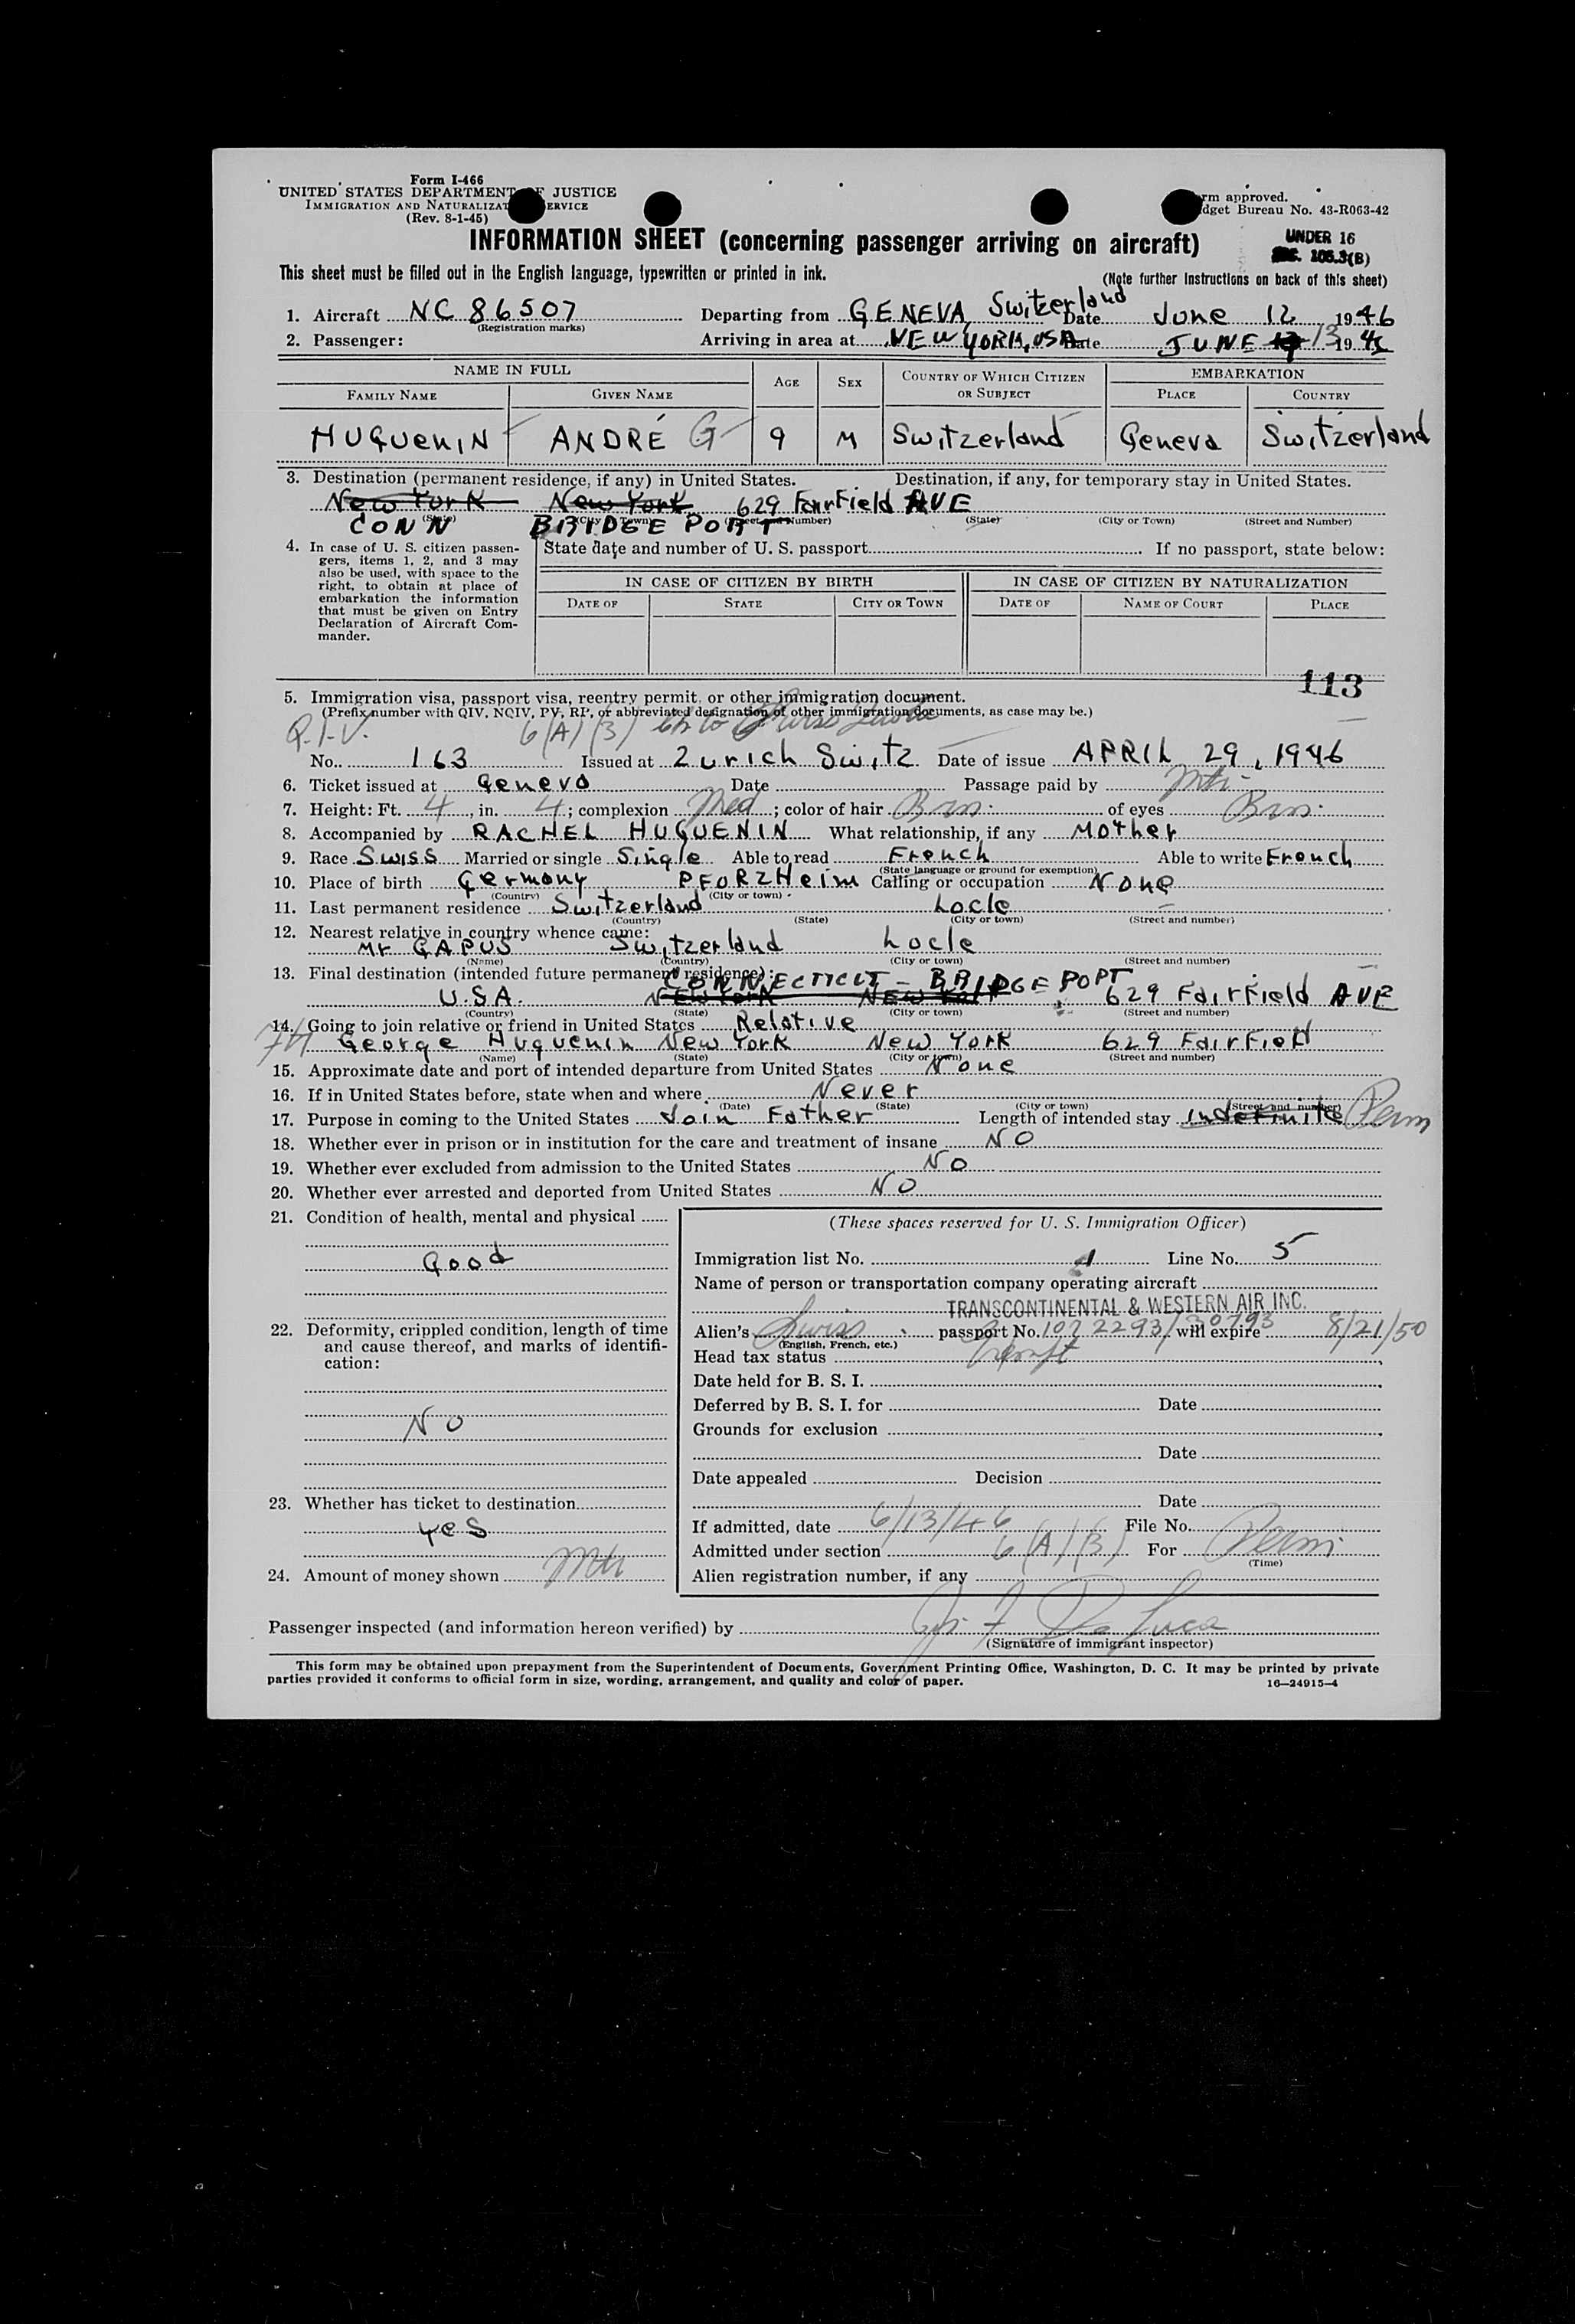 Form I-466
UNITED STATES DEPARTMENT OF JUSTICE
IMMIGRATION AND NATURALIZATION SERVICE
(Rev. 8-1-45)
rm approved.
dget Bureau No. 43-R063-42
INFORMATION SHEET (concerning passenger arriving on aircraft)
UNDER 16
SEC. 105.3(B)
This sheet must be filled out in the English language, typewritten or printed in ink.
(Note further instructions on back of this sheet)
1. Aircraft NC 86507 Departing from GENEVA Switzerland Date June 12 1946
(Registration marks)
2. Passenger: Arriving in area at NEW YORK, USA Date JUNE 13 1946
NAME IN FULL AGE SEX COUNTRY OF WHICH CITIZEN OR SUBJECT EMBARKATION
FAMILY NAME GIVEN NAME PLACE COUNTRY
HUGUENIN ANDRÉ G 9 M Switzerland Geneva Switzerland
3. Destination (permanent residence, if any) in United States. Destination, if any, for temporary stay in United States.
New York New York 629 FairField AVE
(State) (City or Town) (Street and Number) (State) (City or Town) (Street and Number)
CONN BRIDGEPORT
4. In case of U. S. citizen passen-
gers, items 1, 2, and 3 may
also be used, with space to the
right, to obtain at place of
embarkation the information
that must be given on Entry
Declaration of Aircraft Com-
mander.
State date and number of U. S. passport If no passport, state below:
IN CASE OF CITIZEN BY BIRTH IN CASE OF CITIZEN BY NATURALIZATION
DATE OF STATE CITY OR TOWN DATE OF NAME OF COURT PLACE
113
5. Immigration visa, passport visa, reentry permit, or other immigration document.
(Prefix number with QIV, NQIV, PV, RP, or abbreviated designation of other immigration documents, as case may be.)
Q.I.V. 6(A)(3)
No. 163 Issued at Zurich Switz. Date of issue APRIL 29, 1946
6. Ticket issued at Geneva Date Passage paid by Mth
7. Height: Ft. 4, in. 4; complexion Med; color of hair Brn of eyes Brn
8. Accompanied by RACHEL HUGUENIN What relationship, if any Mother
9. Race Swiss Married or single Single Able to read French Able to write French
(State language or ground for exemption)
10. Place of birth Germany PFORZHeim Calling or occupation None
(Country) (City or town)
11. Last permanent residence Switzerland Locle
(Country) (State) (City or town) (Street and number)
12. Nearest relative in country whence came:
Mr GAPUS Switzerland Locle
(Name) (Country) (City or town) (Street and number)
13. Final destination (intended future permanent residence):
CONNECTICUT - BRIDGEPORT
U.S.A. New York New York 629 FairField AVE
(Country) (State) (City or town) (Street and number)
14. Going to join relative or friend in United States Relative
George Huguenin New York New York 629 Fairfield
(Name) (State) (City or town) (Street and number)
15. Approximate date and port of intended departure from United States None
16. If in United States before, state when and where Never
(Date) (State) (City or town) (Street and number)
17. Purpose in coming to the United States Join Father Length of intended stay Indefinite Perm
18. Whether ever in prison or in institution for the care and treatment of insane NO
19. Whether ever excluded from admission to the United States NO
20. Whether ever arrested and deported from United States NO
21. Condition of health, mental and physical
Good
22. Deformity, crippled condition, length of time
and cause thereof, and marks of identifi-
cation:
NO
23. Whether has ticket to destination
yes
24. Amount of money shown Mth
(These spaces reserved for U. S. Immigration Officer)
Immigration list No. 1 Line No. 5
Name of person or transportation company operating aircraft
TRANSCONTINENTAL & WESTERN AIR INC.
Alien's Swiss passport No. 1072293/30793 will expire 8/21/50
(English, French, etc.)
Head tax status Exempt
Date held for B. S. I.
Deferred by B. S. I. for Date
Grounds for exclusion
Date
Date appealed Decision
Date
If admitted, date 6/13/46 File No.
Admitted under section 6(A)(3) For Perm
(Time)
Alien registration number, if any
Passenger inspected (and information hereon verified) by Jos F De Luca
(Signature of immigrant inspector)
This form may be obtained upon prepayment from the Superintendent of Documents, Government Printing Office, Washington, D. C. It may be printed by private
parties provided it conforms to official form in size, wording, arrangement, and quality and color of paper.
16—24915-4